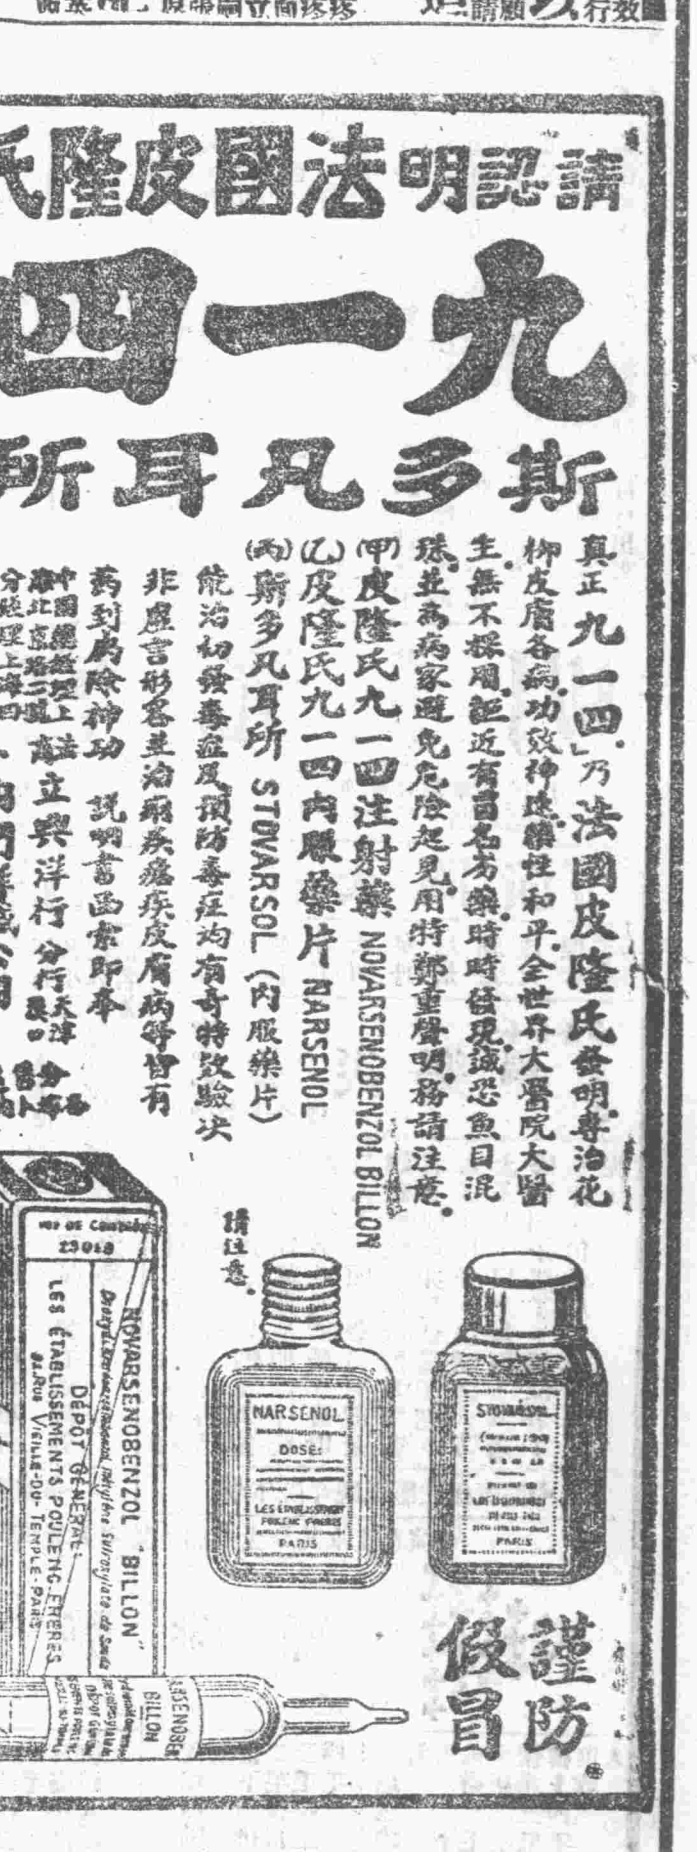 請認明法國皮隆氏
九一四
斯多凡耳所
真正九一四」乃法國皮隆氏發明專治花
柳皮膚各病功效神速藥性和平全世界大醫院大醫
生無不採用詎近有冒名劣藥時時發現誠恐魚目混
珠並為病家避免危險起見用特鄭重聲明務請注意
(甲)皮隆氏九一四注射藥 NOVARSENOBENZOL BILLON
(乙)皮隆氏九一四內服藥片 NARSENOL
(丙)斯多凡耳所 STOVARSOL (內服藥片)
能治初發毒症及預防毒症均有奇特效驗决
非虛言形容並治痢疾瘧疾皮膚病等皆有
藥到病除神功 說明書函索即奉
中國總經理上海
立興洋行 分行天津漢口
請注意
NARSENOL
DOSE:
LES ÉTABLISSEMENTS
POULENC FRÈRES
PARIS
STOVARSOL
PARIS
23018
NOVARSENOBENZOL "BILLON"
DÉPÔT GÉNÉRAL:
LES ÉTABLISSEMENTS POULENC FRÈRES
RUE VIEILLE-DU-TEMPLE-PARIS
ARSENOBEN
BILLON
謹防
假冒